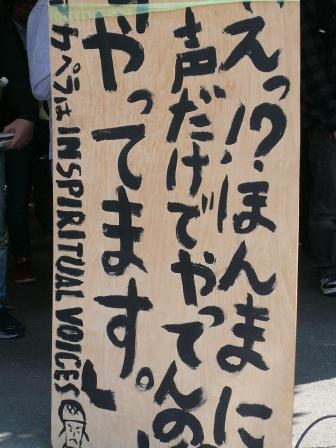 えっ!?ほんまに
声だけでやってんの
やってます。」
カペラは INSPIRITUAL VOICES